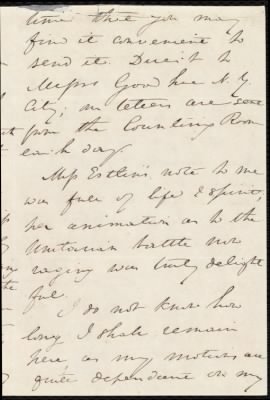 time that you may
find it convenient to
send it. Direct to
Messrs Goodhue N.Y.
City; my letters are sent
from the Counting Room
each day.
Miss Estlin's note to me
was full of life & spirit,
her animation as to the
Unitarian battle now
raging was truly delight
ful.
I do not know how
long I shall remain
here as my motions are
quite dependant on my